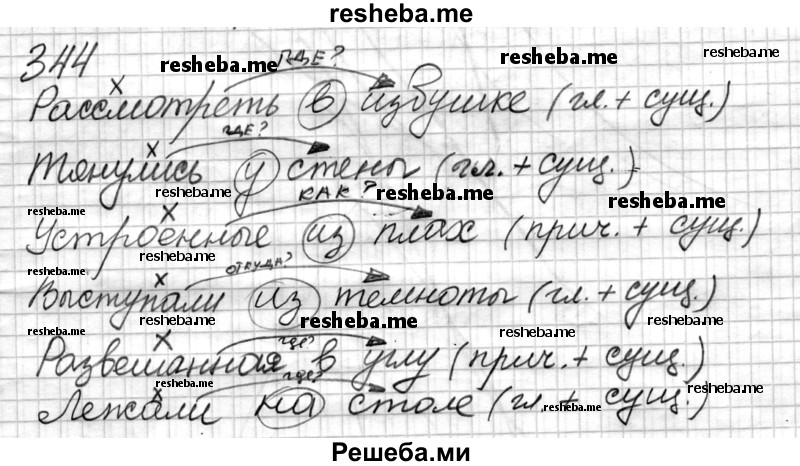 resheba.me
344 ГДЕ?
resheba.me resheba.me resheba.me
Рассмотреть в избушке (гл. + сущ.)
ГДЕ?
Тянулись у стены (гл. + сущ.)
resheba.me КАК? resheba.me resheba.me
Устроенные из плах (прич. + сущ.)
resheba.me
resheba.me ОТКУДА?
Выступали из темноты (гл. + сущ.)
resheba.me resheba.me resheba.me
resheba.me ГДЕ? resheba.me
Развешанная в углу (прич. + сущ.)
resheba.me ГДЕ? resheba.me
Лежали на столе (гл. + сущ.)
resheba.me
Решеба.ми